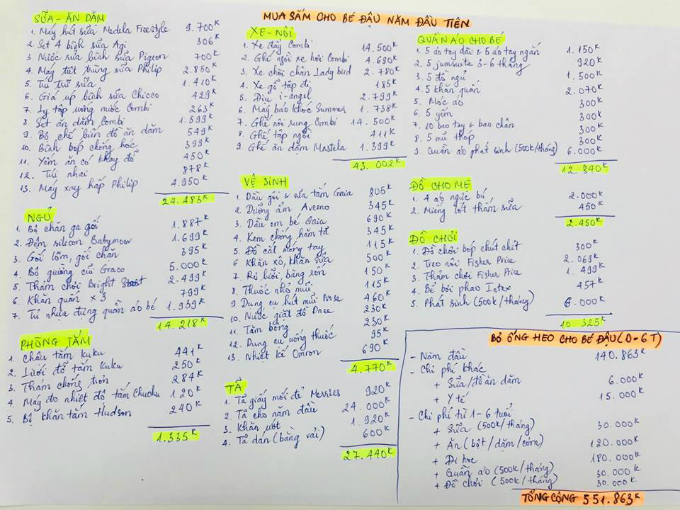 MUA SẮM CHO BÉ ĐẬU NĂM ĐẦU TIÊN
SỮA - ĂN DẶM
1. Máy hút sữa Medela Freestyle 9.700K
2. Set 4 bình sữa Agi 306K
3. Nước rửa bình sữa Pigeon 700K
4. Máy tiệt trùng sữa Philip 2.850K
5. Túi trữ sữa 1.410K
6. Giá úp bình sữa Chicco 429K
7. Ly tập uống nước Combi 263K
8. Set ăn dặm Combi 1.599K
9. Bộ chế biến đồ ăn dặm 549K
10. Bình bóp chống hóc 399K
11. Yếm ăn có khay đỡ 450K
12. Túi nhai 878K
13. Máy xay hấp Philip 4.950K
24.483K
NGỦ
1. Bộ chăn ga gối 1.887K
2. Đệm silicon Babymow 1.699K
3. Gối lõm, gối chặn 395K
4. Bộ giường cũi Graco 5.000K
5. Thảm chơi Bright 2.499K
6. Khăn quấn x 3 799K
7. Tủ nhựa đựng quần áo bé 1.939K
14.218K
PHÒNG TẮM
1. Chậu tắm Kuku 441K
2. Lưới đỡ tắm Kuku 250K
3. Thảm chống trơn 284K
4. Máy đo nhiệt độ tắm Chuchu 120K
5. Bộ khăn tắm Hudson 240K
1.335K
XE - NÔI
1. Xe đẩy Combi 14.500K
2. Ghế ngồi xe hơi Combi 4.690K
3. Xe chòi chân Lady bird 2.780K
4. Xe gỗ tập đi 185K
5. Địu i-angel 2.799K
6. Máy báo khóc Summer 1.738K
7. Ghế nôi rung Combi 14.500K
8. Ghế tập ngồi 411K
9. Ghế ăn dặm Mastela 1.399K
43.002K
VỆ SINH
1. Dầu gội & sữa tắm Gaia 805K
2. Dưỡng ẩm Aveeno 345K
3. Dầu em bé Gaia 690K
4. Kem chống hăm tã 345K
5. Đồ cắt móng tay 115K
6. Khăn xô, khăn sữa 500K
7. Rơ lưỡi, băng rốn 150K
8. Thuốc nhỏ mũi 115K
9. Dụng cụ hút mũi 460K
10. Nước giặt đồ Dnee 230K
11. Tăm bông 230K
12. Dụng cụ uống thuốc 95K
13. Nhiệt kế Omron 690K
4.770K
TÃ
1. Tã giấy mới đẻ Merries 920K
2. Tã cho năm đầu 24.000K
3. Khăn ướt 1.920K
4. Tã dán (bằng vải) 600K
27.440K
QUẦN ÁO CHO BÉ
1. 5 áo tay dài & 5 áo tay ngắn 1.150K
2. 5 jumsuits 3-6 tháng 920K
3. 5 đồ ngủ 1.500K
4. 5 khăn quấn 2.070K
5. Móc áo 300K
6. 5 yếm 300K
7. 10 bao tay & bao chân 300K
8. 5 mũ thóp 300K
9. Quần áo phát sinh (500K/tháng) 6.000K
12.840K
ĐỒ CHO MẸ
1. 4 áo ngực bú 2.000K
2. Miếng lót thấm sữa 450K
2.450K
ĐỒ CHƠI
1. Đồ chơi bóp chút chít 300K
2. Treo nôi Fisher Price 2.069K
3. Thảm chơi Fisher Price 1.499K
4. Bể bơi phao Intex 457K
5. Phát sinh (500K/tháng) 6.000K
10.325K
BỎ ỐNG HEO CHO BÉ ĐẬU (0-6T)
- Năm đầu 140.863K
- Chi phí khác
+ Sữa/đồ ăn dặm 6.000K
+ Y tế 15.000K
- Chi phí từ 1-6 tuổi
+ Sữa (500K/tháng) 30.000K
+ Ăn (bột/dặm/cơm) 120.000K
+ Đi học 180.000K
+ Quần áo (500K/tháng) 30.000K
+ Đồ chơi (500K/tháng) 30.000K
TỔNG CỘNG 551.863K